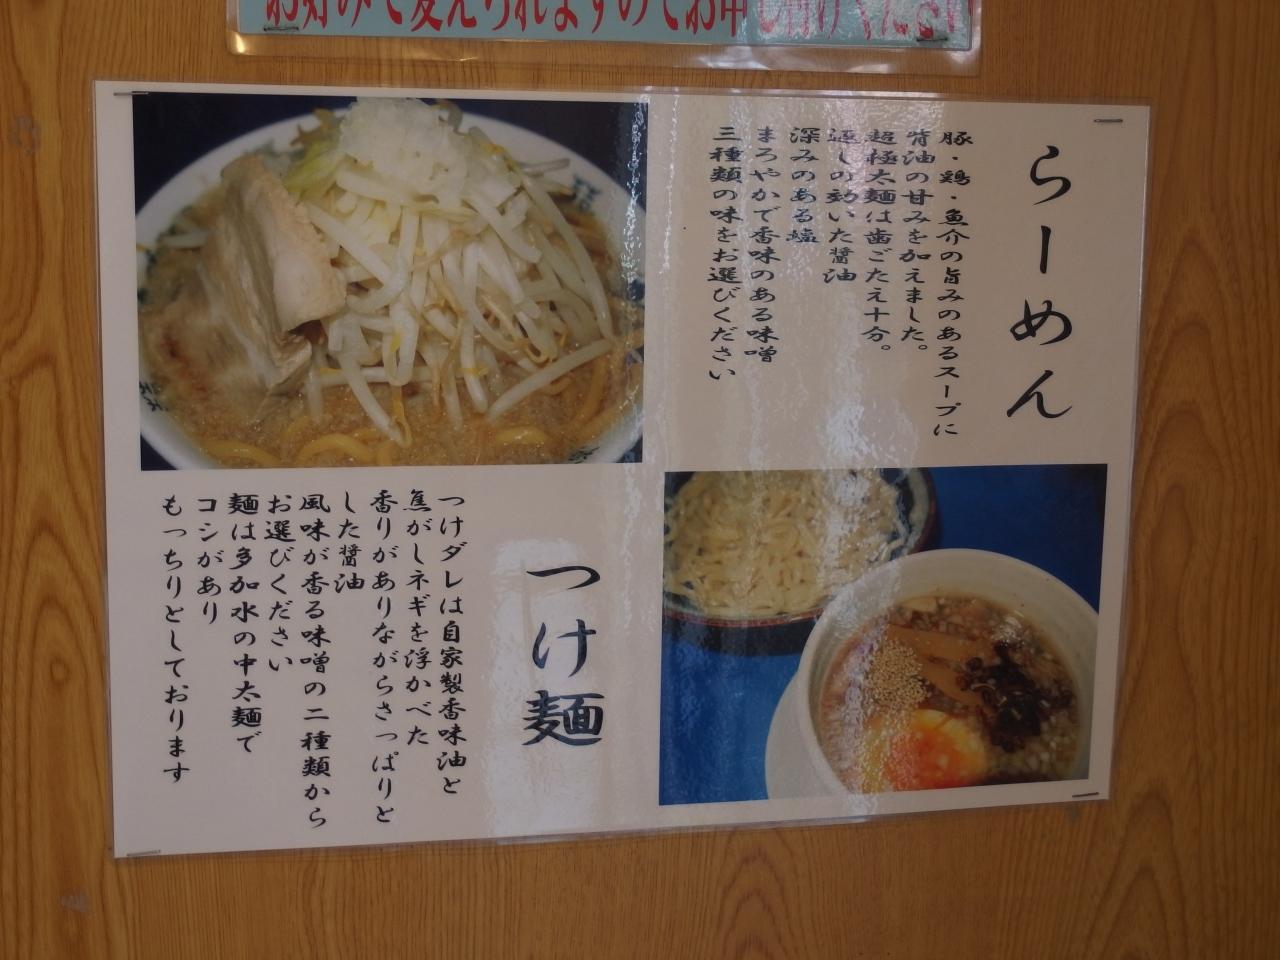 お好みで変えられますのでお申し付けください
らーめん
豚・鶏・魚介の旨みのあるスープに
背油の甘みを加えました。
超極太麺は歯ごたえ十分。
返しの効いた醤油
深みのある塩
まろやかで香味のある味噌
三種類の味をお選びください
つけ麺
つけダレは自家製香味油と
焦がしネギを浮かべた
香りがありながらさっぱりと
した醤油
風味が香る味噌の二種類から
お選びください
麺は多加水の中太麺で
コシがあり
もっちりとしております